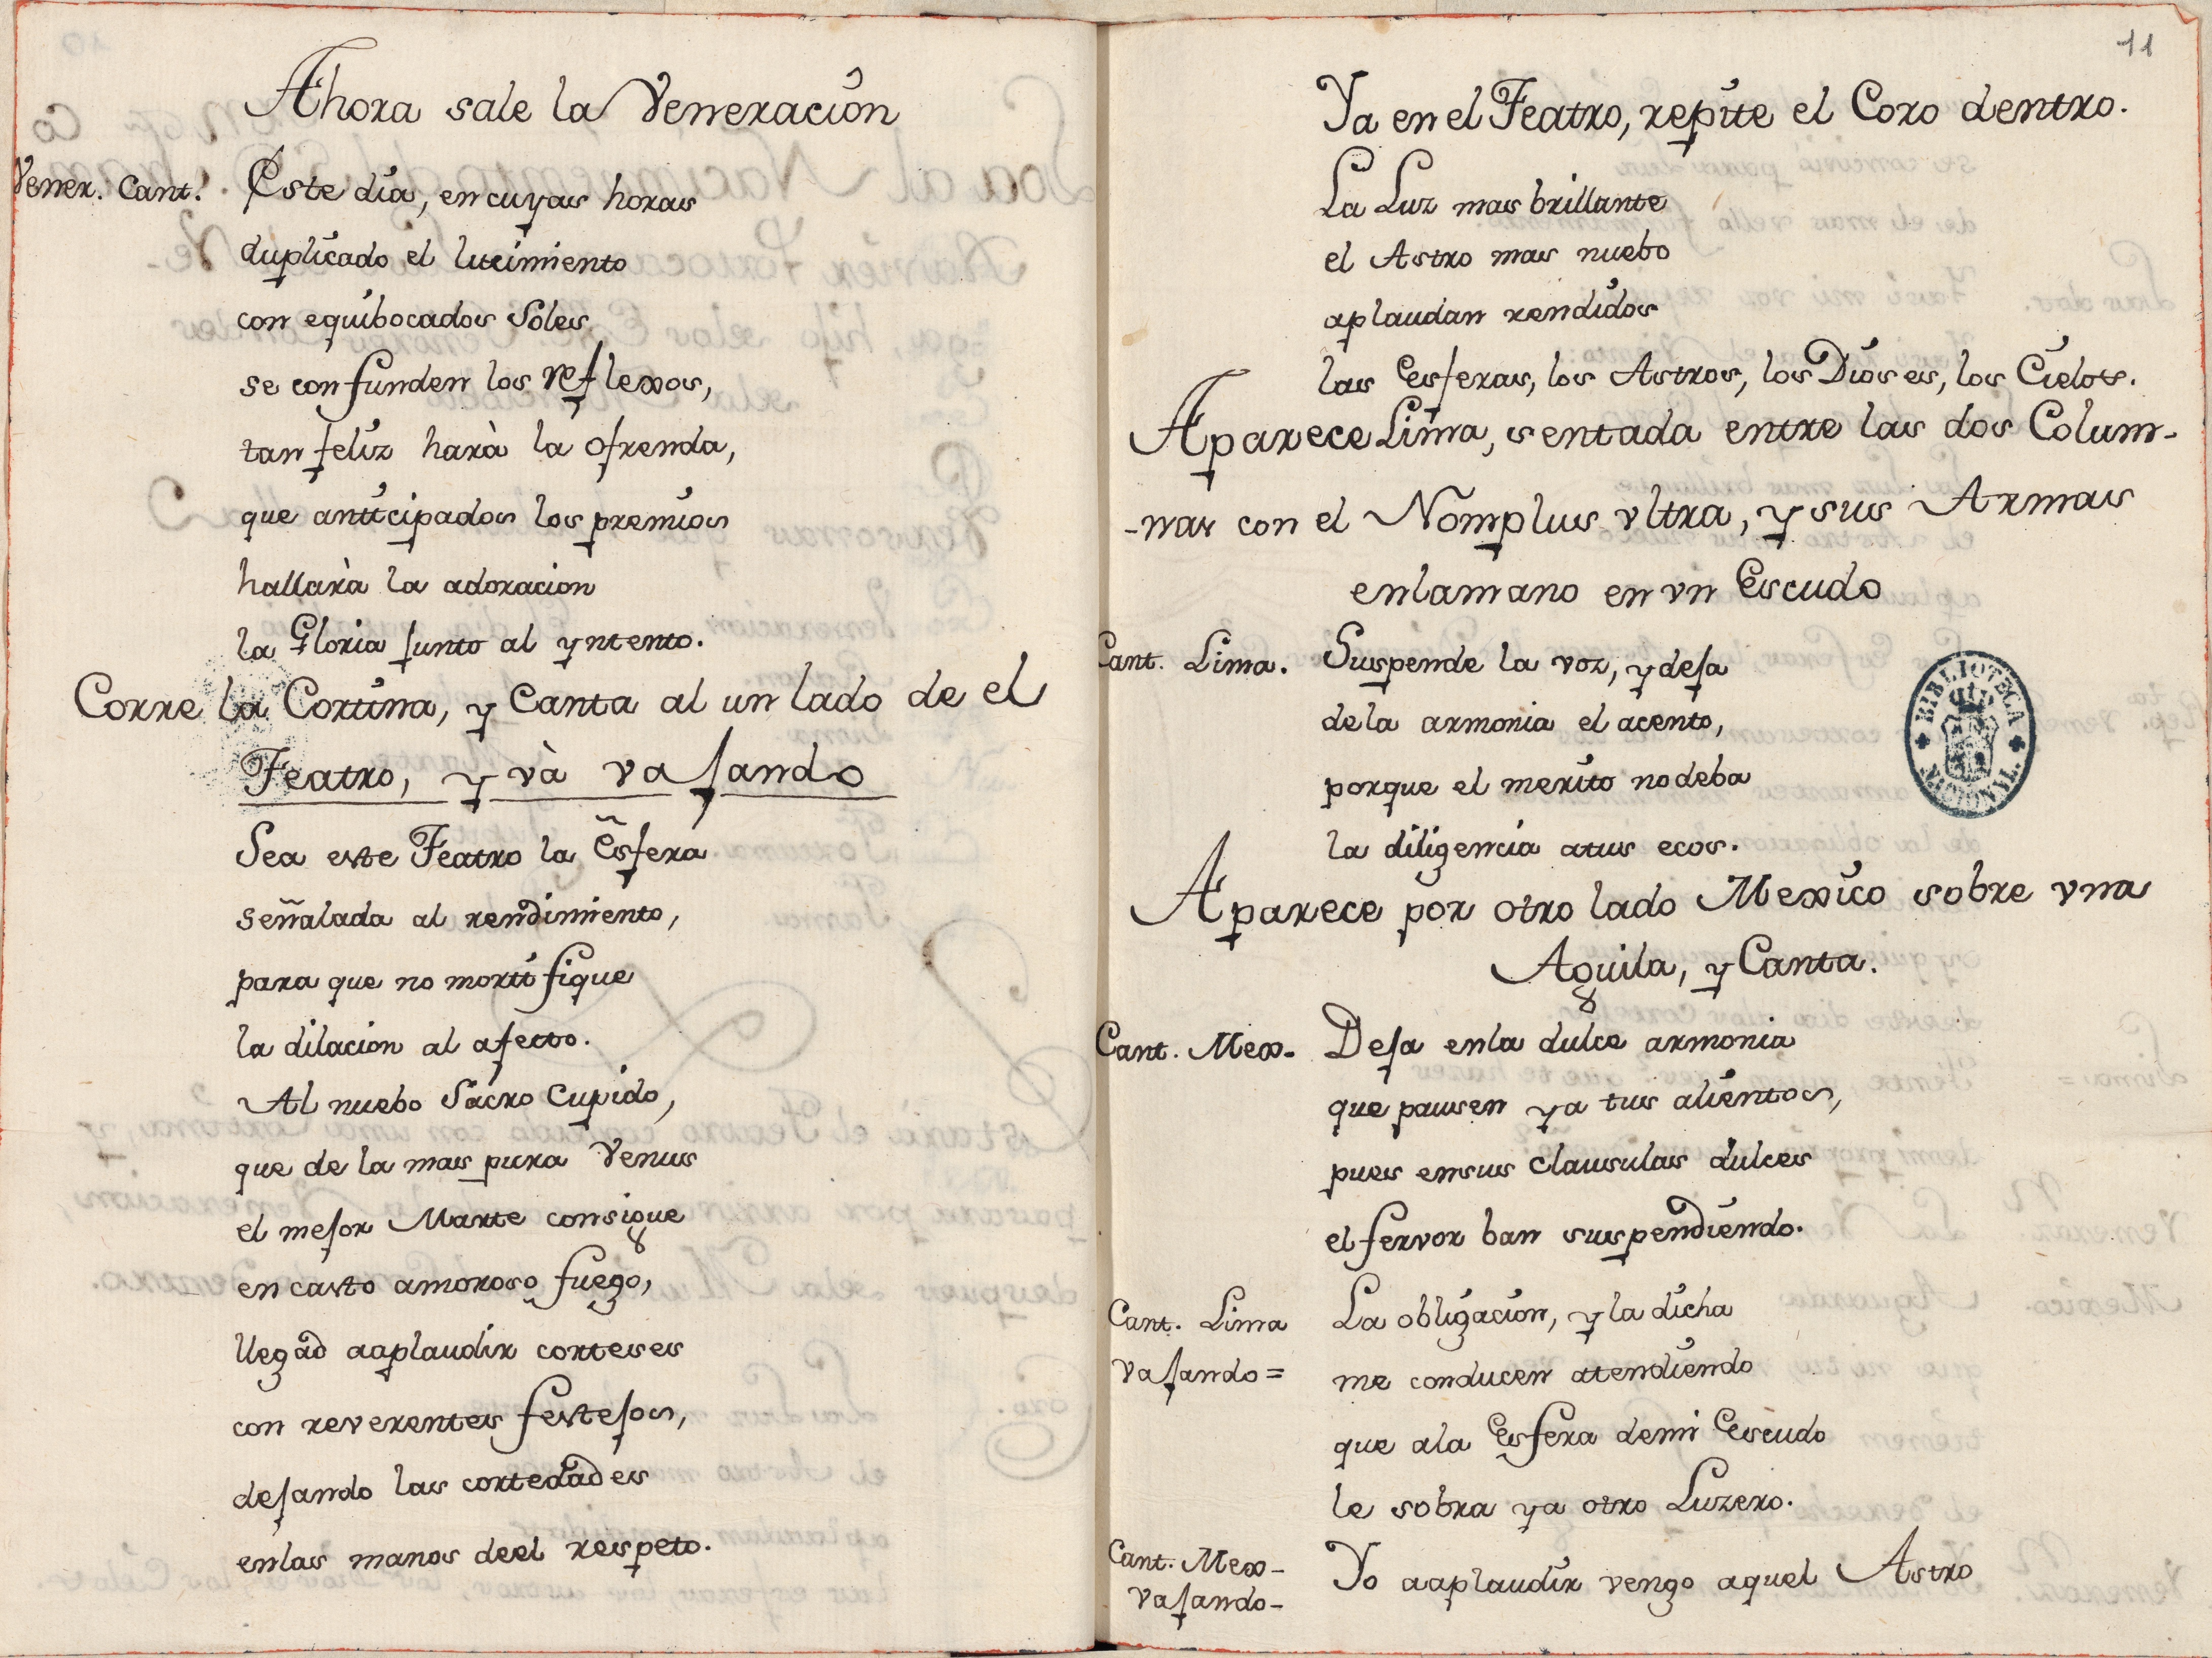 Ahora sale la Veneración
Vener. Cant.! Este dia, en cuyas horas
duplicado el lucimiento
con equibocados Soles
se confunden los reflexos,
tan feliz harà la ofrenda,
que anticipados los premios
hallarà la adoracion
la Gloria junto al yntento.
Corre la Cortina, y Canta al un lado de el
Teatro, y và vajando
Sea este Teatro la Esfera
señalada al rendimiento,
para que no mortifique
la dilacion al afecto.
Al nuebo Sacro Cupido,
que de la mas pura Venus
el mejor Marte consigue
en casto amoroso fuego,
llegad aaplaudir corteses
con reverentes festejos,
dejando las cortedades
enlas manos deel respeto.
11
Ya en el Teatro, repite el Coro dentro.
La Luz mas brillante
el Astro mas nuebo
aplaudan rendidos
las Esferas, los Astros, los Dioses, los Cielos.
Aparece Lima, sentada entre las dos Colum-
-nas con el Nomplus vltra, y sus Armas
enlamano en vn Escudo
Cant. Lima. Suspende la voz, y deja
dela armonia el acento,
porque el merito nodeba
la diligencia atus ecos.
Aparece por otro lado Mexico sobre vna
Aguila, y Canta.
Cant. Mex- Deja enla dulce armonia
que pausen ya tus alientos,
pues ensus clausulas dulces
el fervor ban suspendiendo.
Cant. Lima La obligacion, y la dicha
vajando = me conducen atendiendo
que ala Esfera demi Escudo
le sobra ya otro Luzero.
Cant. Mex- Yo aaplaudir vengo aquel Astro
vajando-
BIBLIOTECA NACIONAL